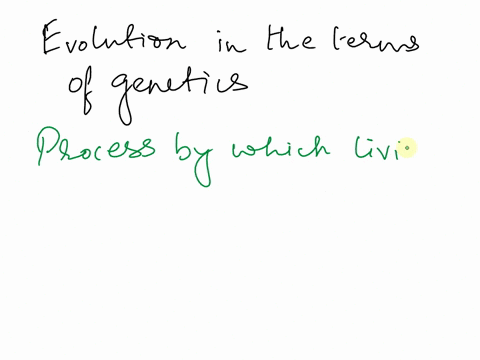 Evolution in the terms
of genetics
Process by which livi